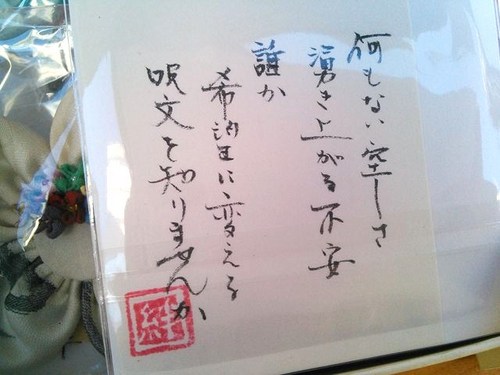 何もない空しさ
湧き上がる不安
誰か
希望に変える
呪文を知りませんか
絆